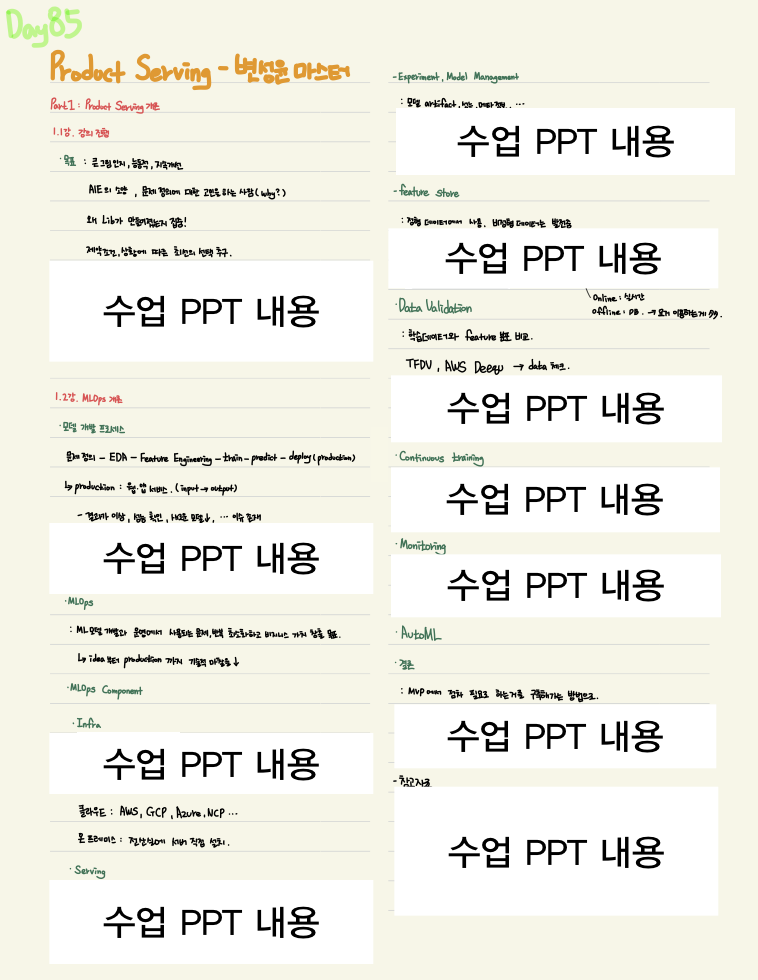 Day85
Product Serving - 변성윤 마스터
Part1 : Product Serving 기본
1.1강. 강의 진행
·목표 : 큰그림 인지, 능동적, 지속개선
AIE의 소양, 문제정의에 대한 고민을 하는 사람(why?)
왜 Lib가 만들어졌는지 집중!
제약조건, 상황에 따른 최선의 선택 추구.
수업 PPT 내용
1.2강. MLOps 개론
·모델 개발 프로세스
문제정의 - EDA - Feature Engineering - train - predict - deploy(production)
↳ production : 웹·앱 서비스. (input → output)
- 결과가 이상, 성능 확인, 모델↓, ··· 이슈 존재
수업 PPT 내용
·MLOps
: ML모델 개발과 운영에서 사용되는 문제, 반복 최소화하고 비지니스 가치 창출 목표.
↳ idea부터 production 까지 기술적 마찰을 ↓
·MLOps Component
·Infra
수업 PPT 내용
클라우드 : AWS, GCP, Azure, NCP ···
온프레미스 : 전산실에 서버 직접 설치.
·Serving
수업 PPT 내용
- Experiment, Model Management
: 모델 artifact, 메타정보, ···
수업 PPT 내용
- feature store
: 정형데이터에서 사용. 비정형데이터는 발전중
수업 PPT 내용
Online : 실시간
Offline : DB. →
·Data Validation
: 학습데이터와 feature 분포 비교.
TFDV, AWS Deequ → data 체크.
수업 PPT 내용
·Continuous training
수업 PPT 내용
·Monitoring
수업 PPT 내용
·AutoML
·결론
: MVP에서 점차 필요로 하는거를 구축해가는 방법으로.
수업 PPT 내용
- 참고자료
수업 PPT 내용